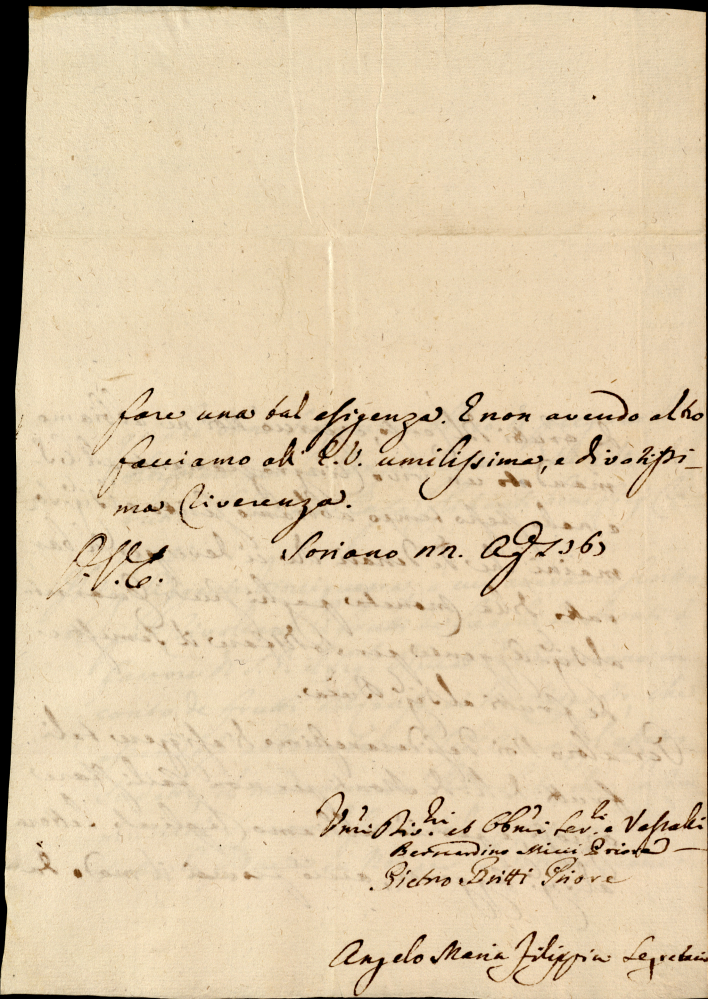 fare una tal esigenza. E non avendo altro
facciamo all' E.V. umilissima, e divotissi-
ma Riverenza.
Soriano
Umi Div.mi et Obb.mi Ser.i e Vassalli
Bernardino Micci Priore
Pietro Britti Priore
Angelo Maria Filippi Segretario